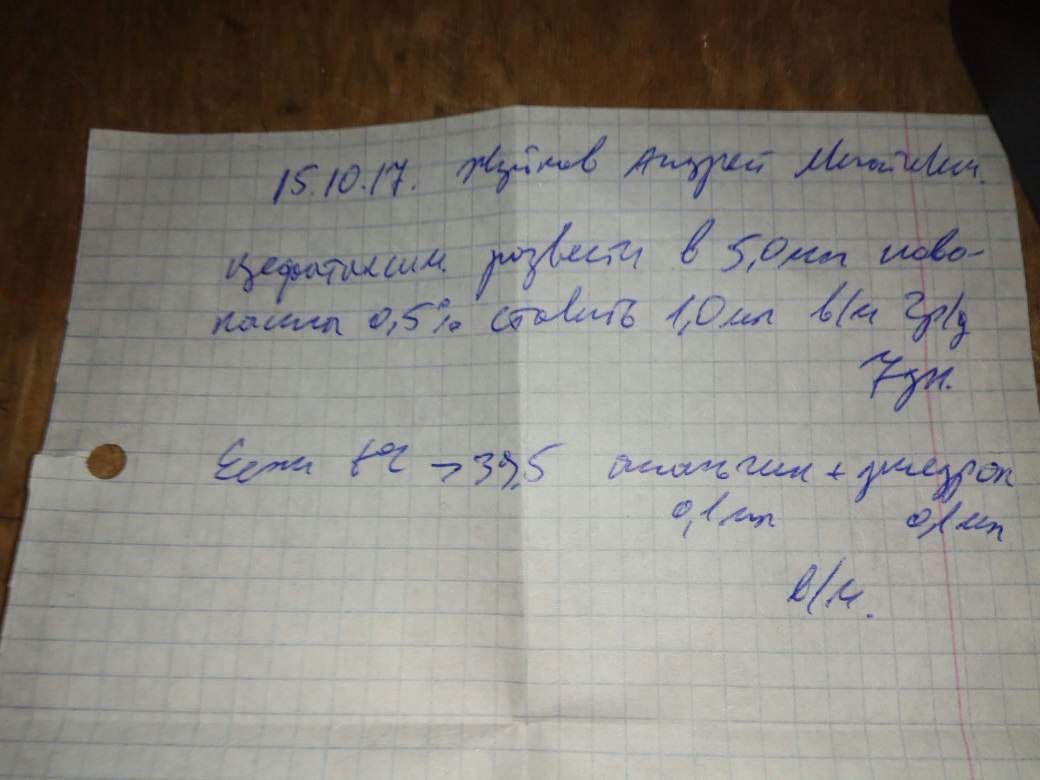 15.10.17. Жуйков Андрей
цефотаксим. розвести в 5,0 мл ново-
каины 0,5% ставить 1,0 мл в/м 2р/д
7дн.
Если t°C → 39,5 анальгин + димедрол
0,1 мл 0,1 мл
в/м.